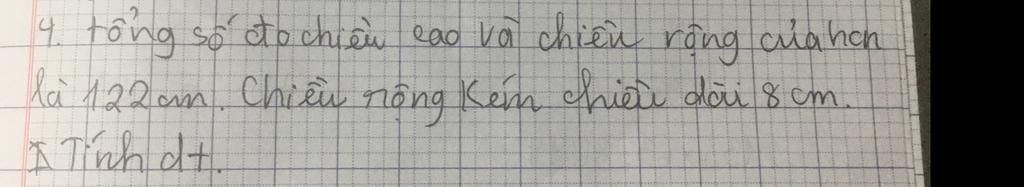 4. tổng số đo chiều cao và chiều rộng của hcn
là 122cm. Chiều rộng kém chiều dài 8cm.
Tính dt.